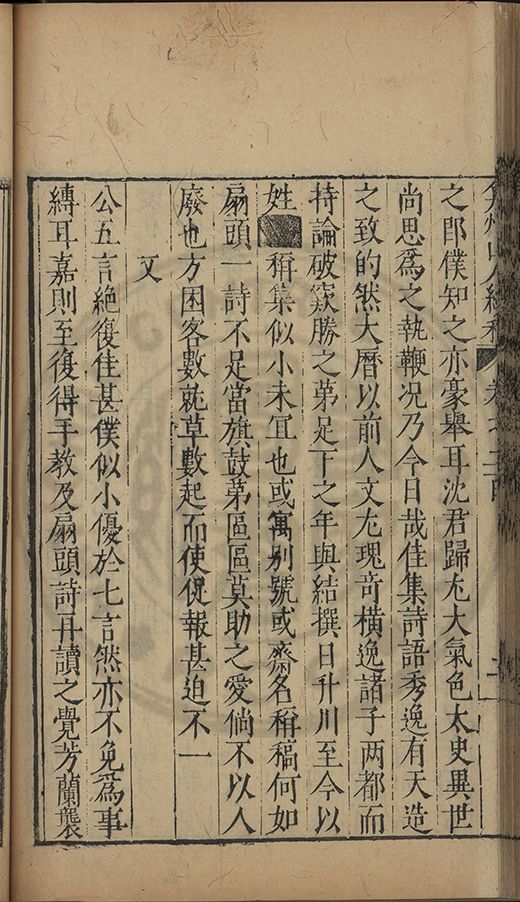 弇州山人續稿 卷之二百
之郎僕知之亦豪舉耳沈君歸尤大氣色太史異世
尚思爲之執鞭况乃今日哉佳集詩語秀逸有天造
之致的然大曆以前人文尤瑰奇橫逸諸子两都而
持論破窾勝之第足下之年與結撰日升川至今以
姓 稱集似小未冝也或寓别號或齋名稱稿何如
扇頭一詩不足當旗鼓第區區莫助之愛倘不以人
廢也方困客數就草數起而使促報甚迫不一
又
公五言絶復佳甚僕似小優於七言然亦不免爲事
縳耳嘉則至復得手教及扇頭詩再讀之覺芳蘭襲